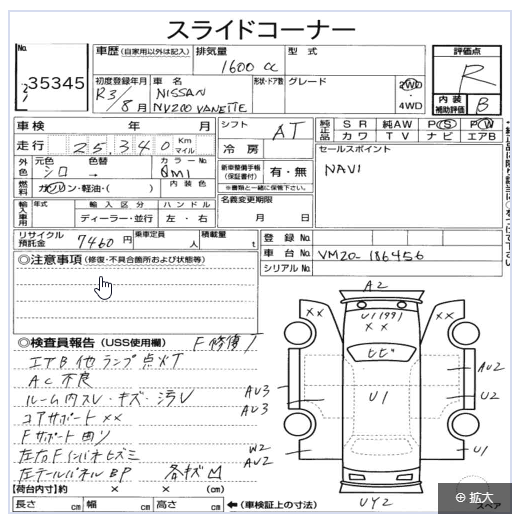 スライドコーナー
No. 35345
車歴 (自家用以外は記入) 排気量 1600 cc 型式 評価点 R
初度登録年月 R3/8月 車名 NISSAN NV200 VANETTE 形状・ドア数 グレード 2WD・4WD 内装補助評価 B
車検 年 月 シフト AT 純正品 SR 純AW PS PW
カワ TV ナビ エアB
走行 25,340 Km マイル 冷房 セールスポイント
外色 元色 シロ 色替 → カラーNo. QM1 新車整備手帳(保証書付) 有・無 NAVI
燃料 ガソリン・軽油・( ) 内装色 ※書類と一緒に保管下さい。
輸入車用 年式 輸入区分 ハンドル 名義変更期限
ディーラー・並行 左・右 月 日
リサイクル預託金 7460 円 乗車定員 人 積載量 t 登録No.
車台No. VM20-186456
シリアルNo.
◎注意事項 (修復・不具合箇所および状態等)
A2
XX XX
U1 1991
XX
ヒビ
◎検査員報告 (USS使用欄) F修復了
エアB他ランプ点灯
AC不良
ルーム内スレ・キズ・汚レ
コアサポートXX
Fサポート曲り
左右Fインパネヒズミ
左テールパネルBP 各キズ凹
AU2
AU3
AU3
U1
U2
W2
AU2
U1
UY2
【荷台内寸】約 × × (cm)
長さ cm 幅 cm 高さ cm ←(車検証上の寸法)
スペア
拡大